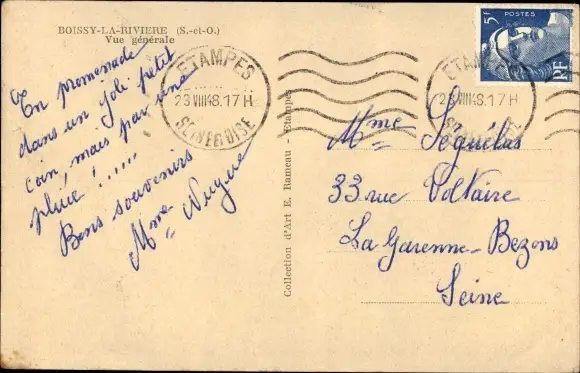 BOISSY-LA-RIVIERE (S.-et-O.)
Vue générale
En promenade
dans un joli petit
coin, mais par une
pluie !.....
Bons souvenirs
Mme
Collection d'Art E. Rameau - Etampes
ETAMPES
23 VIII 48. 17 H
SEINE & OISE
ETAMPES
23 VIII 48. 17 H
5F
POSTES
RF
Mme Séguélas
33 rue Voltaire
La Garenne-Bezons
Seine